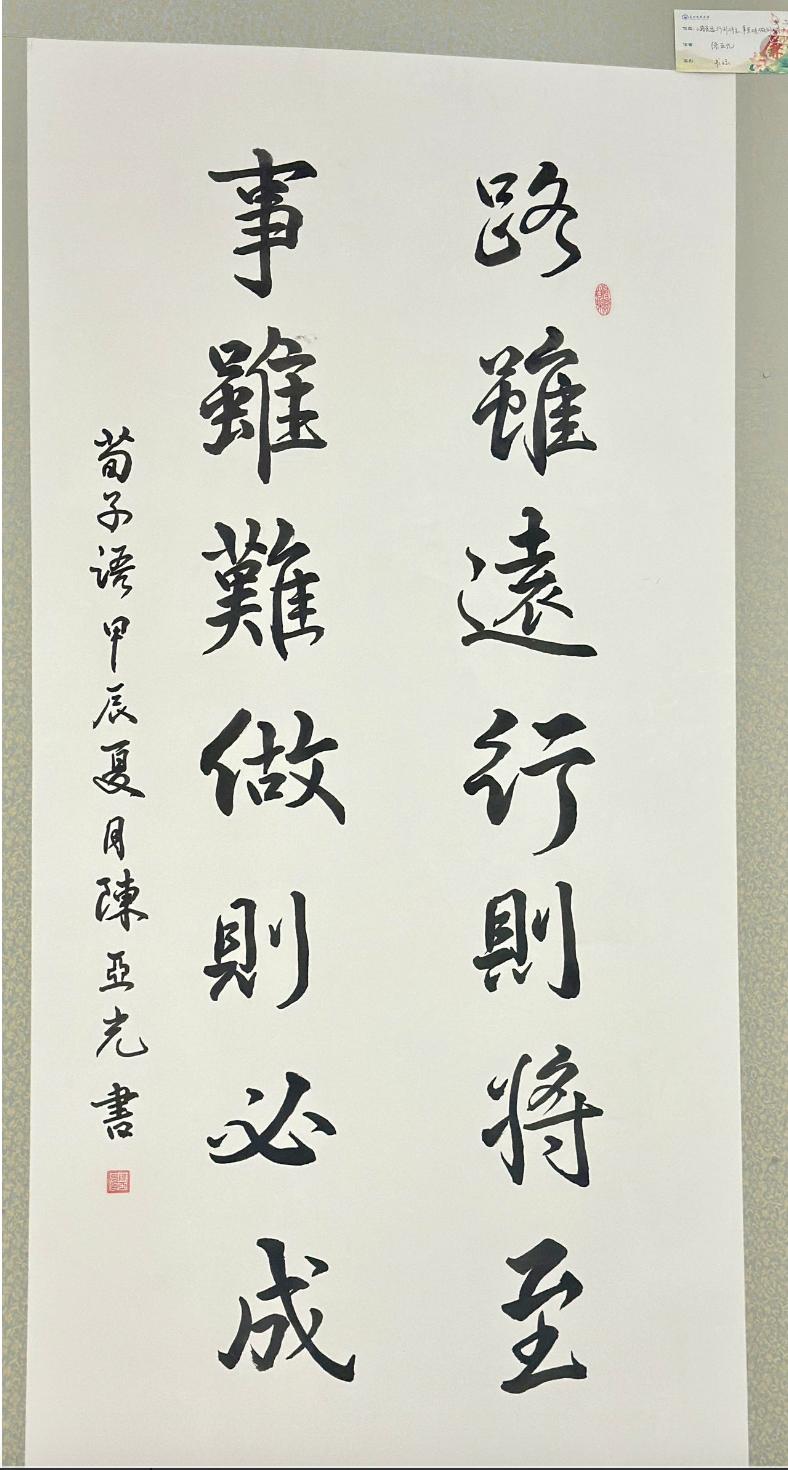 路雖遠行則將至
事雖難做則必成
荀子語甲辰夏月陳亞光書